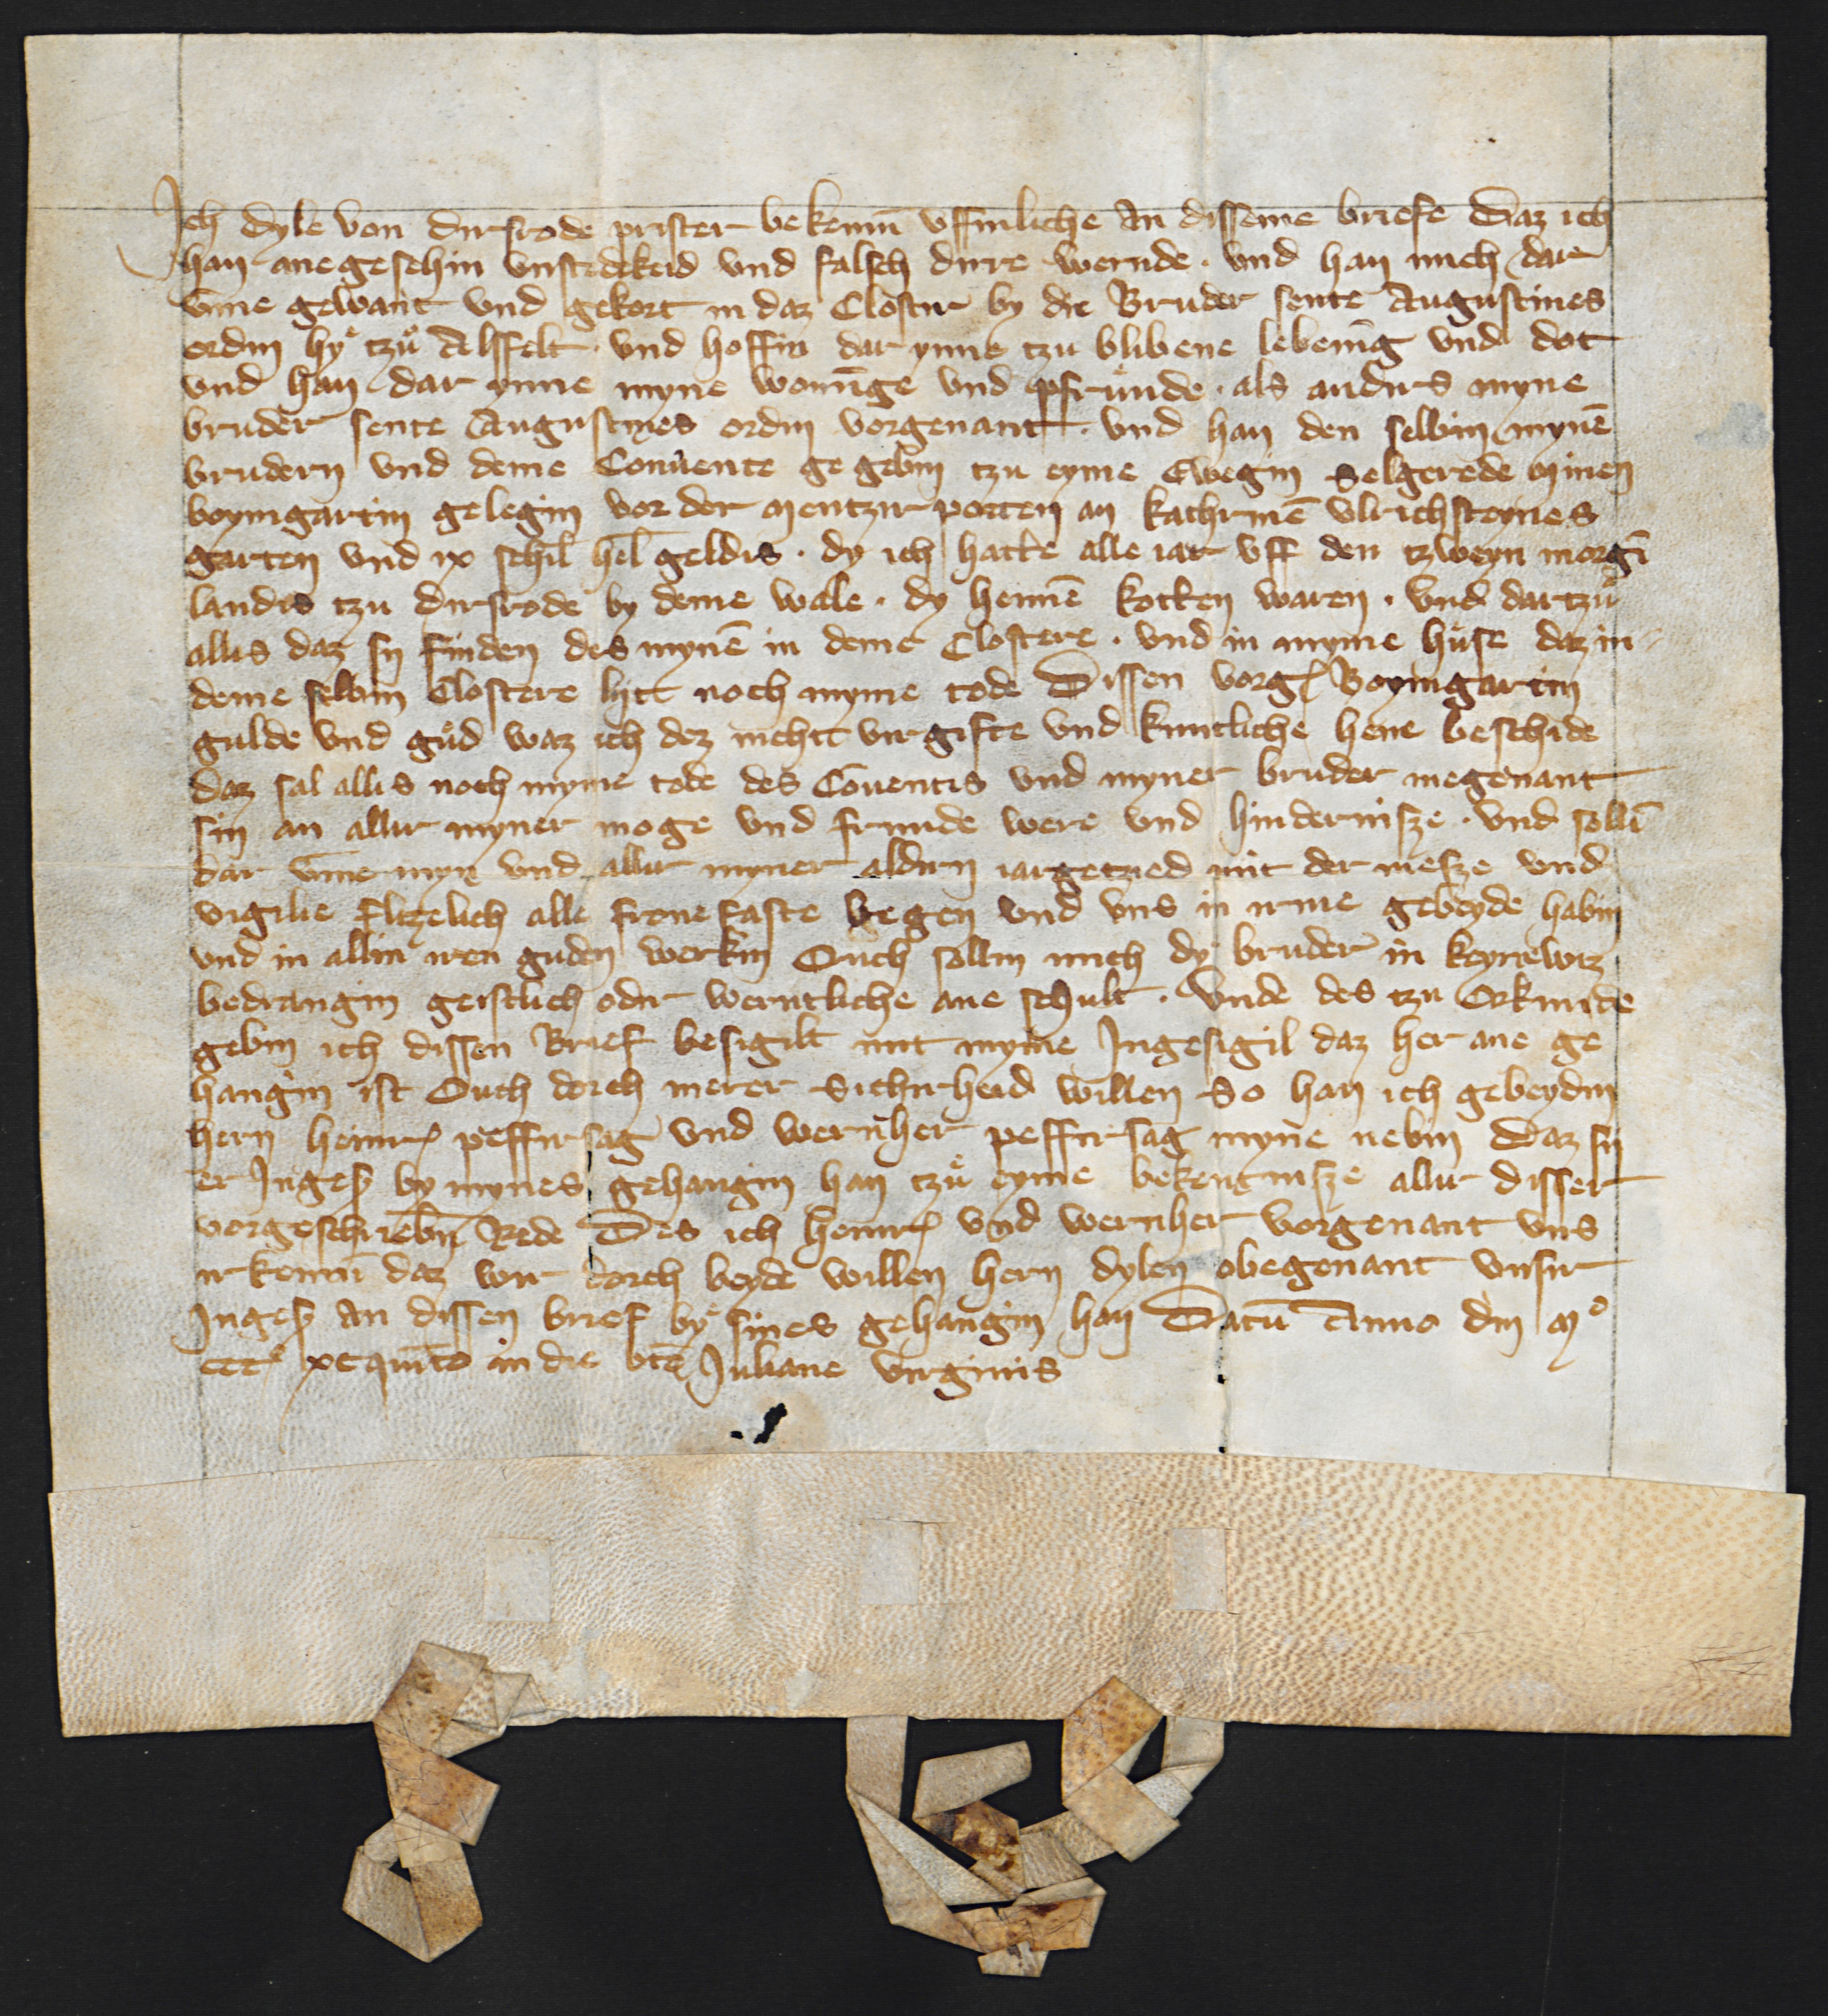 Ich dyle von dirsrode prister bekenn̄ uffinliche An disseme briefe Daz ich
han ane gesehin vnstedekeid vnd falsch dirre wernde · vnd han mich dar
vm̄e gewant vnd gekort in daz Clostir by die Bruder sente Augustines
ordin hy tzů Alsfelt · vnd hoffin dar ynne tzu blibene lebenīg vnd dot
vnd han dar ynne myne wonūge vnd pfrůnde · als andirs myne
bruder sente Augustines ordin vorgenant · vnd han den selbin mynē
brudern vnd deme Conuente ge gebin tzu eyme Ewegin Selgerede minen
boymgartin gelegin vor der mentzir porten an kathrinē vlrichsteynes
garten vnd ix schil hel geldis · dy ich hatte alle iar vff den tzweyn morgī
landis tzu dirsrode by deme wale · dy hennē kocken waren · vnd dartzů
allis daz sy finden des mynē in deme Clostere · vnd in myme hůse daz in
deme selbin Clostere lytt noch myme tode Dissen vorg Boymgartin
gulde vnd gůd waz ich dez nichtt vir gifte vnd kuntliche hene beschide
daz sal allis noch myme tode des Cōuentis vnd myner bruder megenant
sin an allir myner moge vnd frunde were vnd hindernisze · vnd sollī
dar vm̄e myn vnd allir myner aldirn iargetzied mit der messe vnd
vigilie flizelich alle frone faste begen vnd vns in irme gebeyde habin
vnd in allin iren guden werkin Ouch sollin mich dy bruder in keynewiz
bedrangin geistlich odir werntliche ane schult · Vnde des tzu Orkunde
gebin ich dissen Brief besigilt mit myme Ingesigil daz her ane ge
hangin ist Ouch dorch merer Sichirheid willen So han ich gebeydin
hern heinr peffirsag vnd wernher peffirsag myne nebin Daz sy
er Inges by mynes gehangin han tzů eyme bekentnisze allir disser
vorgeschrebin Rede Des ich heinr vnd wernher vorgenant vns
irkennī daz wir dorch beyde willen hern dylen obegenant vnsir
Inges An dissen brief by sines gehangin han Datū Anno dn̄i mᵒ
cccᵒ xc quīto in die bt̄e Juliane virginis